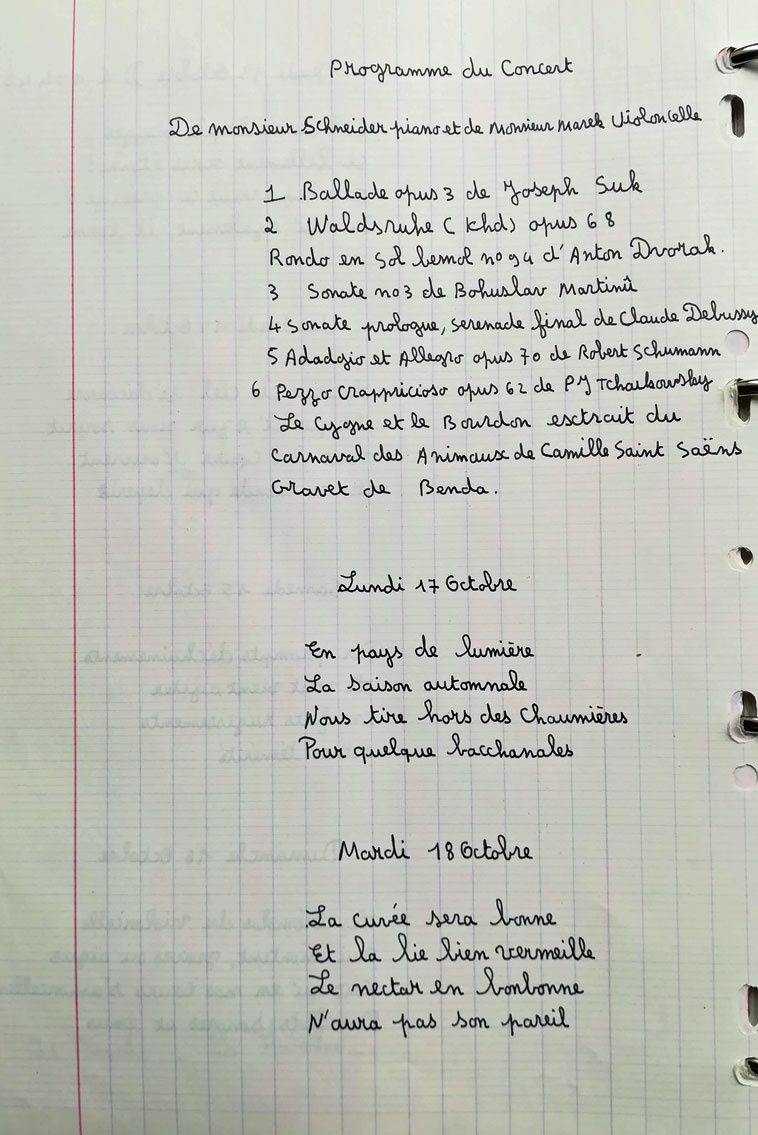 Programme du Concert
De monsieur Schneider piano et de Monsieur Marek Violoncelle
1 Ballade opus 3 de Joseph Suk
2 Waldsruhe ( khd) opus 68
Rondo en Sol bemol no 94 d'Anton Dvorak.
3 Sonate no3 de Bohuslav Martinû
4 Sonate prologue, serenade final de Claude Debussy
5 Adadgio et Allegro opus 70 de Robert Schumann
6 Pezzo Crappricioso opus 62 de PJ Tchaikowsky
Le Cygne et le Bourdon esctrait du
Carnaval des Animaux de Camille Saint Saëns
Gravet de Benda.
Lundi 17 Octobre
En pays de lumière
La saison automnale
Nous tire hors des Chaumières
Pour quelque bacchanales
Mardi 18 Octobre
La cuvée sera bonne
Et la lie bien vermeille
Le nectar en bonbonne
N'aura pas son pareil